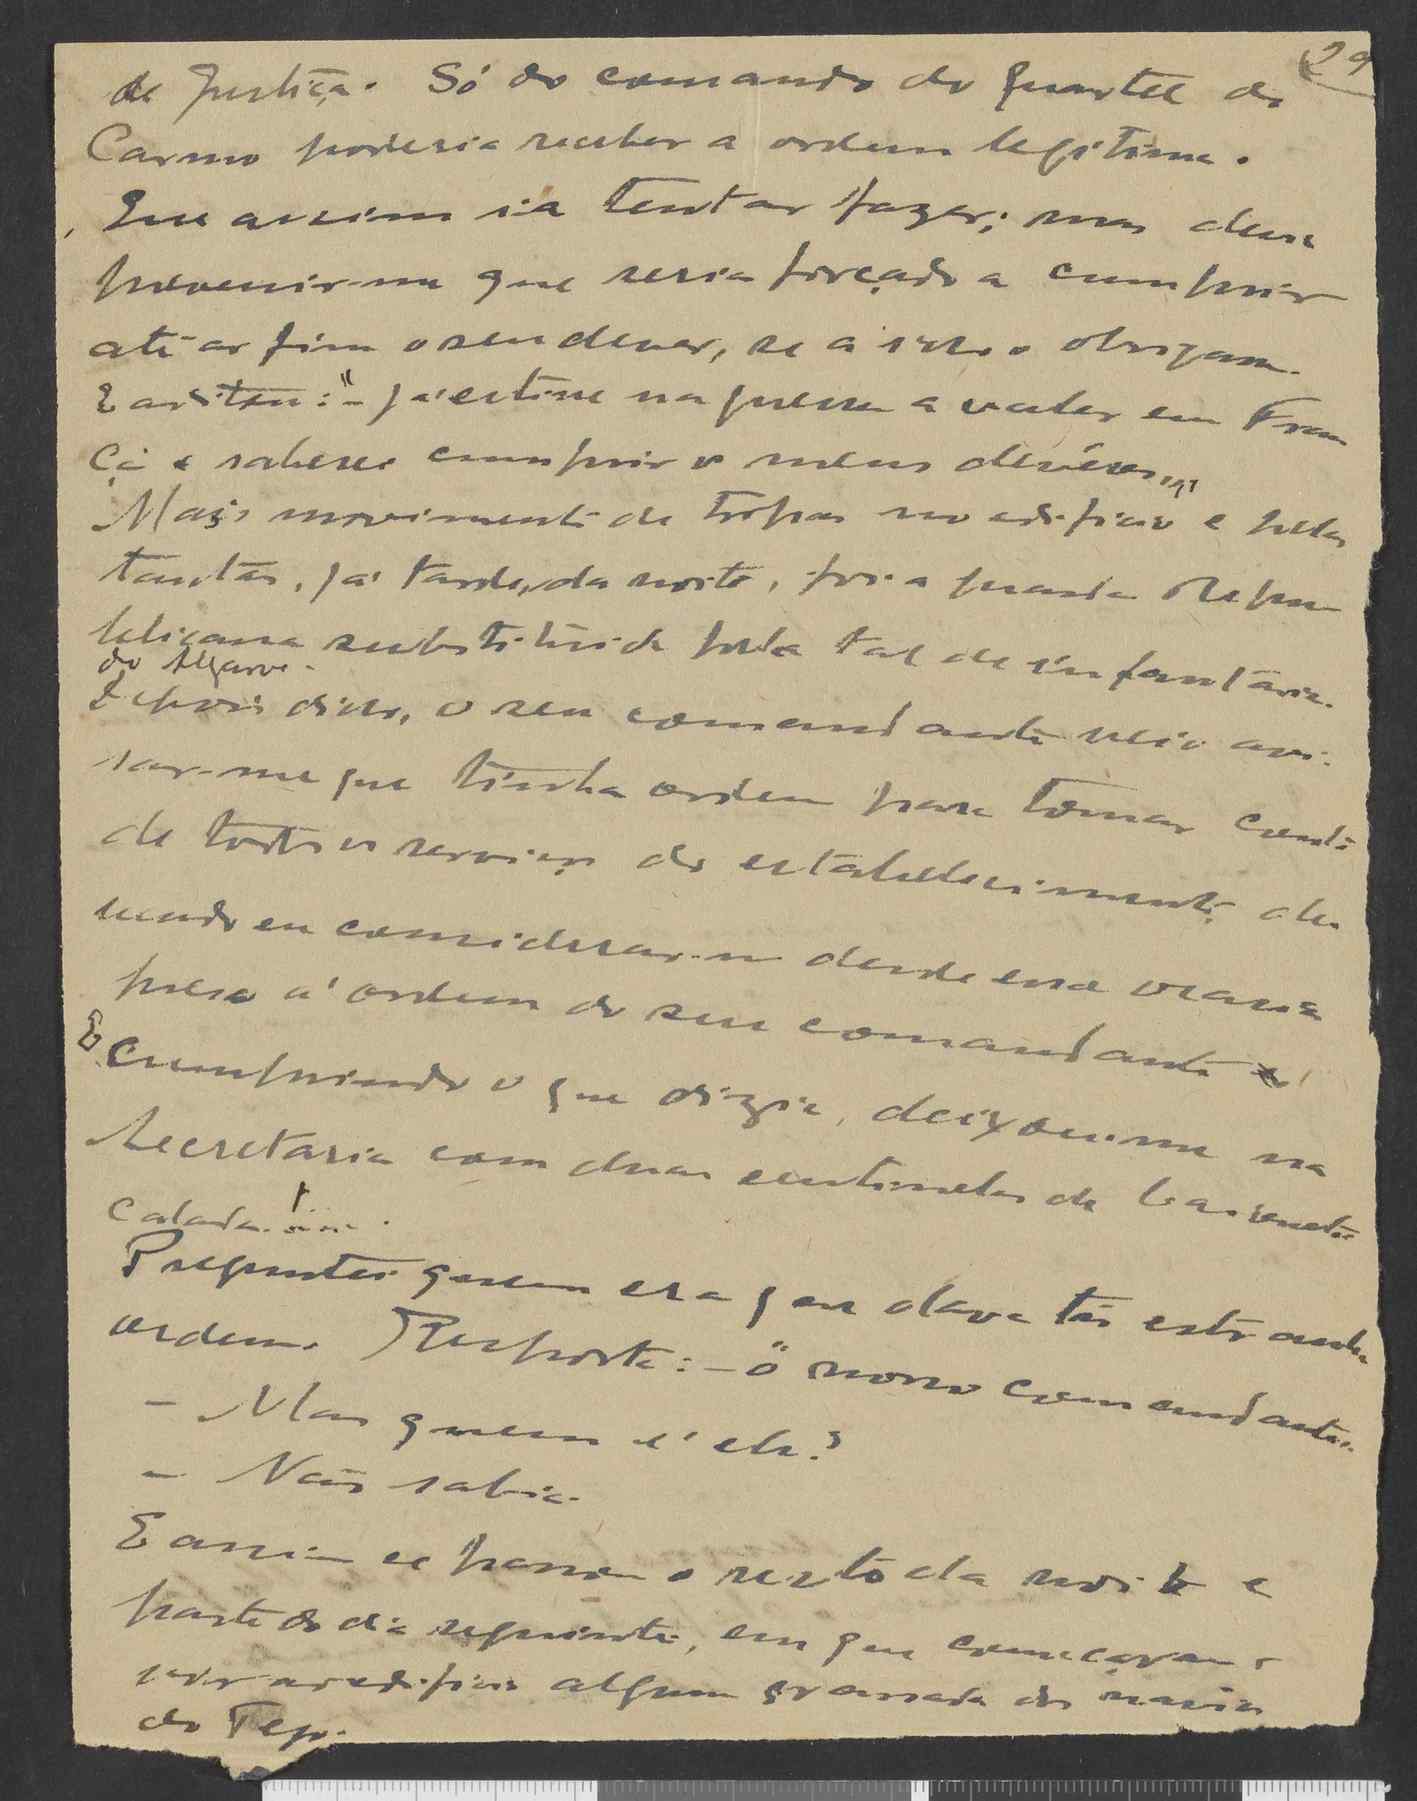 29
de Justiça. Só do comando do Quartel do
Carmo poderia receber a ordem legitima.
Que assim ia tentar fazer; mas devia
prevenir-me que seria forçado a cumprir
até ao fim o seu dever, se a isso o obrigassem.
E aditou: "- já estive na guerra a valer em Fran
ça e saberei cumprir os meus devêres..."
Mais movimento de tropas no edificio e pelas
tantas, já tarde, da noite, foi a guarda Repu
blicana substituida pela tal de infantaria
do Algarve.
Depois disso, o seu comandante veio avi-
sar-me que tinha ordem para tomar conta
de todos os serviços do estabelecimento, de-
vendo eu considerar-me desde essa ocasião
preso á ordem do seu comandante
E cumprindo o que dizia, deixou-me na
Secretaria com duas sentinelas de baioneta
calada.
Preguntei quem era que dava tão estranha
ordem. Resposta: - o nosso comandante.
- Mas quem é ele?
- Não sabia.
E assim se passou o resto da noite e
parte do dia seguinte, em que começaram a
vir ao edificio algumas granadas dos navios
do Tejo.